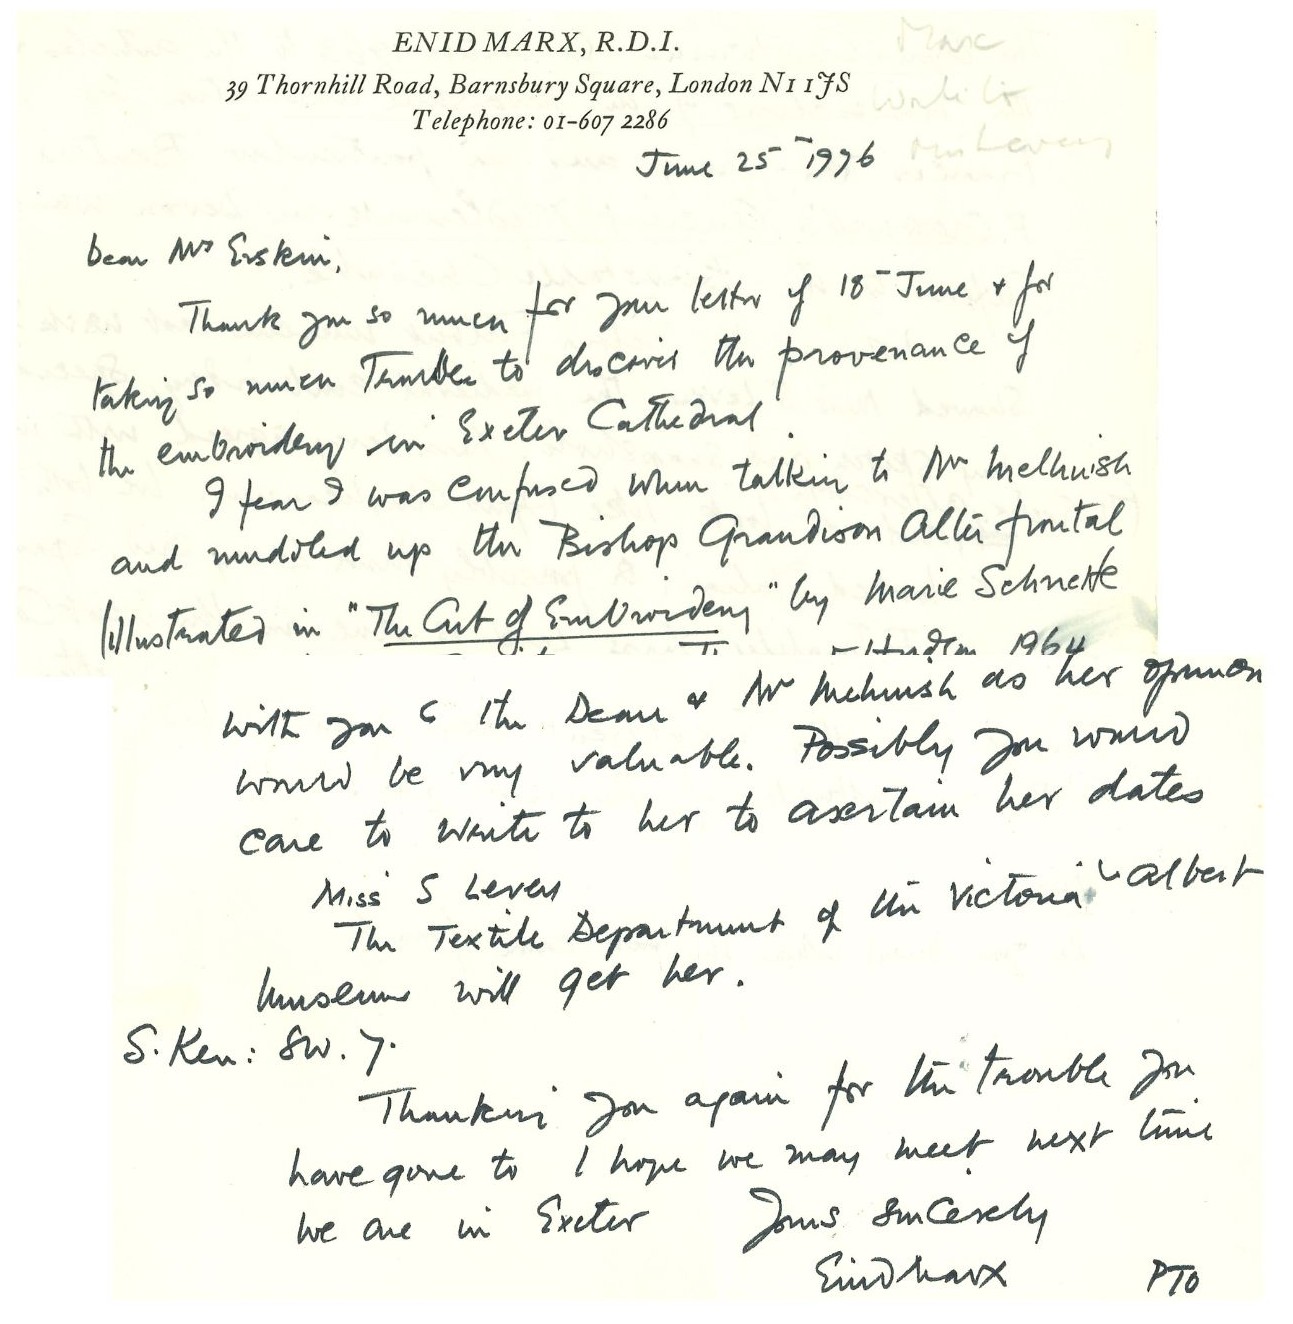 ENID MARX, R.D.I.
39 Thornhill Road, Barnsbury Square, London N1 1JS
Telephone: 01-607 2286
June 25 1976
Dear Mrs Erskin,
Thank you so much for your letter of 18 June & for
taking so much trouble to discover the provenance of
the embroidery in Exeter Cathedral.
I fear I was confused when talking to Mr Melhuish
and muddled up the Bishop Grandison Alter frontal
(illustrated in "The Art of Embroidery" by Marie Schuette
1964
with you & the Dean & Mr Melhuish as her opinion
would be very valuable. Possibly you would
care to write to her to ascertain her dates
Miss S Levey
The Textile Department of the Victoria & Albert
Museum will get her.
S. Ken: SW. 7.
Thanking you again for the trouble you
have gone to I hope we may meet next time
we are in Exeter Yours sincerely
Enid Marx PTO